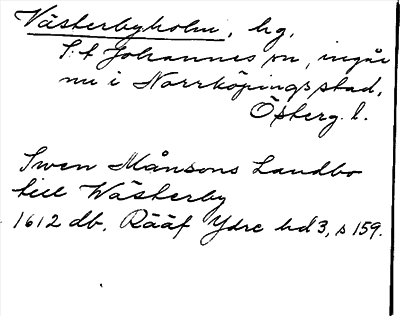 Västerbyholm, hg,
S:t Johannes sn, ingår
nu i Norrköpings stad,
Österg. l.
Swen Månsons Landbo
till Wästerby
1612 db. Rääf Ydre hd 3, s 159.